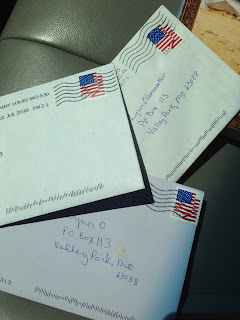 SAINT LOUIS MO 630
02 JUL 2018 PM 2 L
Lynn
PO Box 113
Valley Park, MO 63088
Lynn O
PO Box 113
Valley Park, Mo
63088